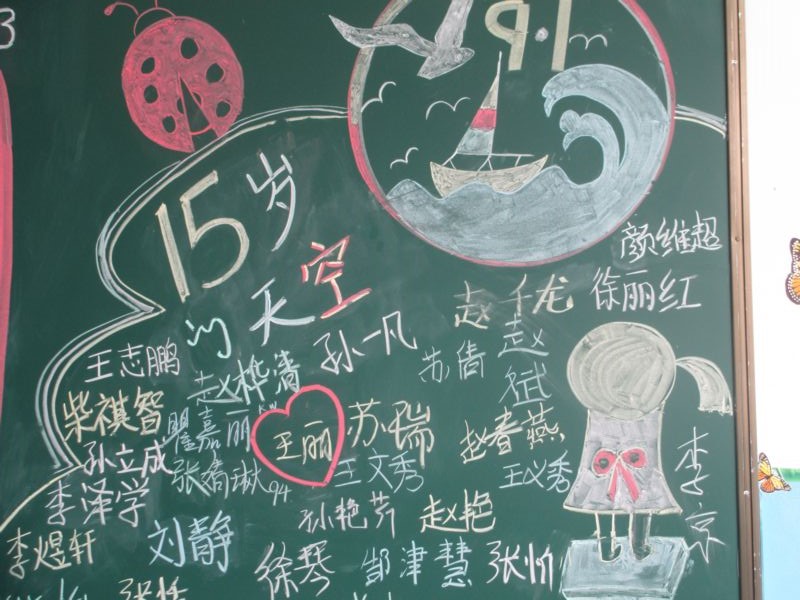 3
1.9
15岁
的天空
颜维超
赵千龙 徐丽红
王志鹏 孙一凡
赵桦清 苏倩 赵斌
柴祺智 嘉丽 王丽 苏瑞 赵春燕
孙立成 王文秀 王义秀 李京
李泽学 94
孙艳芹 赵艳
李煜轩 刘静
徐琴 邹津慧 张忻
张恬